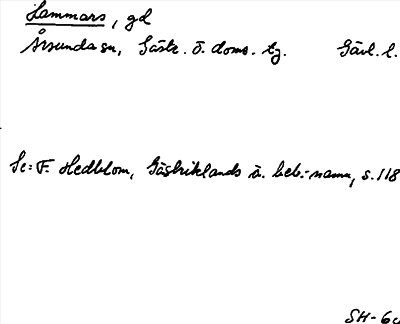 Hammars, gd
Årsunda sn, Gästr. ö. doms. tg. Gävl. l.
Se: F. Hedblom, Gästriklands ä. beb.-namn, s. 118
SH-60